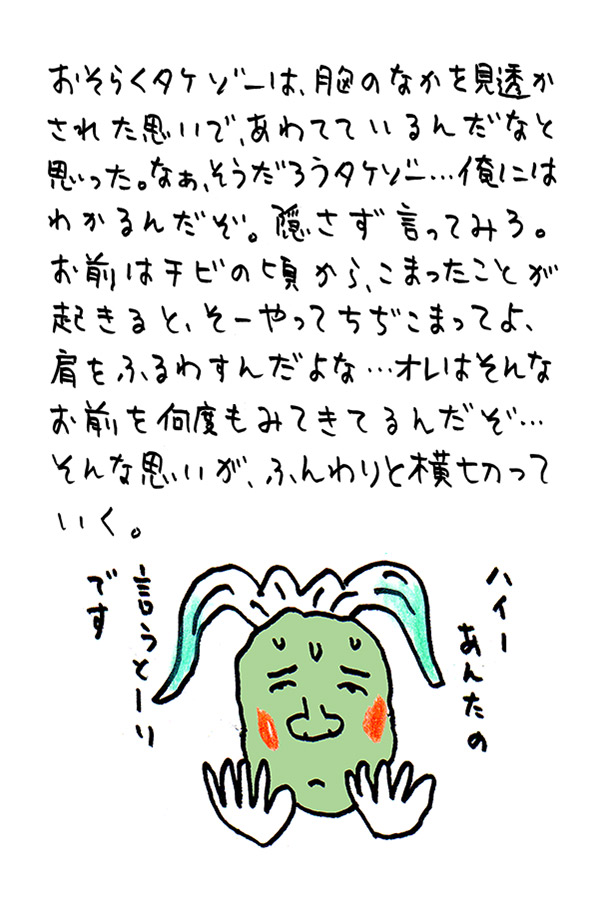 おそらくタケゾーは、胸のなかを見透か
された思いで、あわてているんだなと
思った。なぁ、そうだろうタケゾー…俺には
わかるんだぞ。隠さず言ってみろ。
お前はチビの頃から、こまったことが
起きると、そーやってちぢこまってよ、
肩をふるわすんだよな…オレはそんな
お前を何度もみてきてるんだぞ…
そんな思いが、ふんわりと横切って
いく。
ハイー
あんたの
言うとーり
です